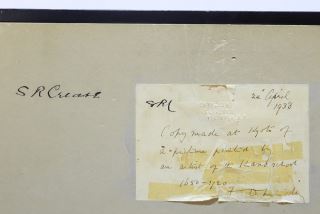 S R Crease
SRC
2nd April
1933
Copy made at Kyoto of
a picture painted by
an artist of the Kano school
1650-1720